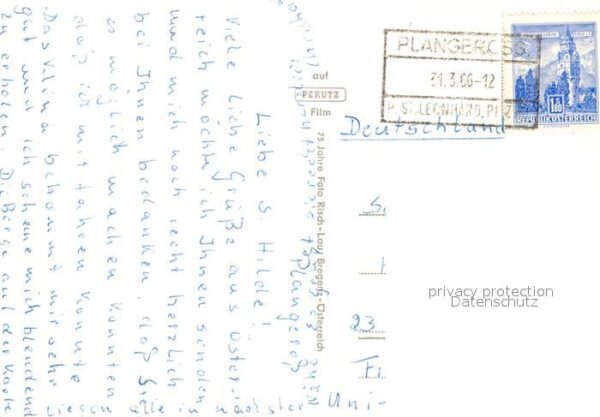 Liebe S Hilde!
Viele liebe Grüße aus Öster-
reich möchte ich Ihnen senden
und mich noch recht herzlich
bei Ihnen bedanken, daß Sie
es möglich machen konnten
daß ich mitfahren konnte
Das Klima bekommt mir sehr
gut und ich scheine mich blendend
zu erholen. Die Berge auf der Karte
liegen alle in nächster Um-
Plangeroß
auf
PERUTZ
Film
75 Jahre Foto Risch-Lau Bregenz-Österreich
PLANGEROSS
31.3.66-12
P. ST. LEONHARD, PITZ
1.80
REPUBLIK ÖSTERREICH
Deutschland
S.
23
privacy protection
Datenschutz